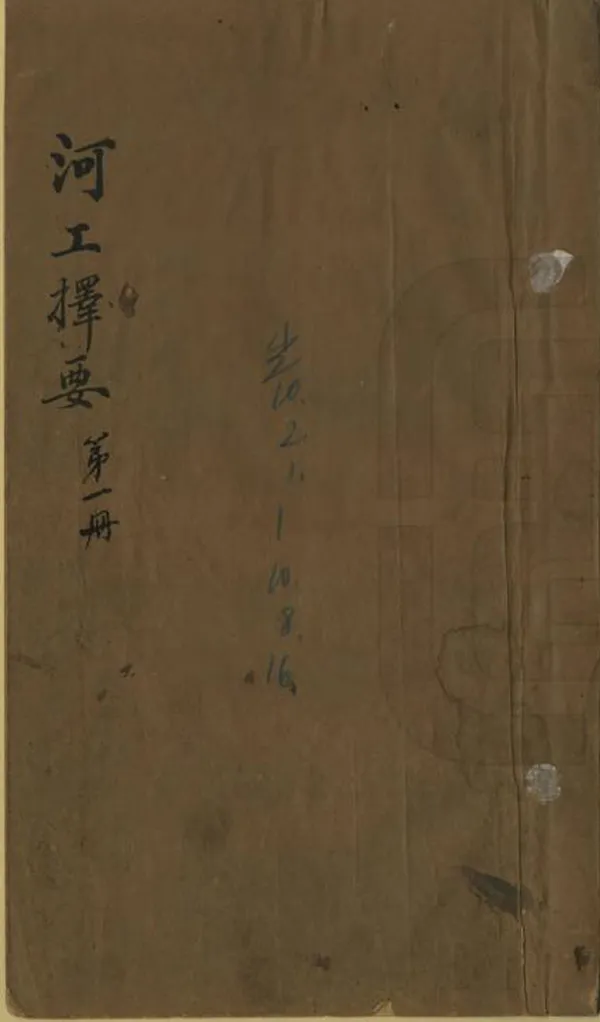 河工擇要
第一冊
10.
2.
1.
|
10.
8.
16.